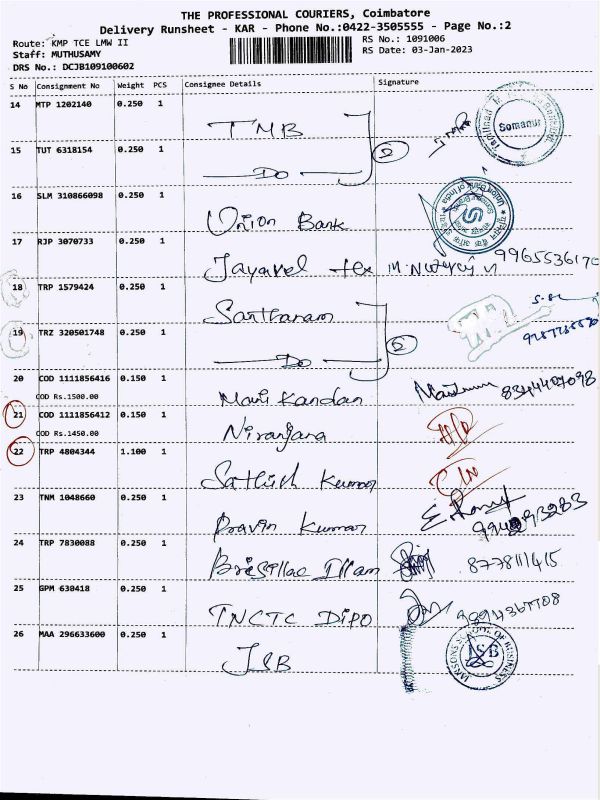 THE PROFESSIONAL COURIERS, Coimbatore
Delivery Runsheet - KAR - Phone No.:0422-3505555 - Page No.:2
Route: KMP TCE LMW II
RS No.: 1091006
Staff: MUTHUSAMY
RS Date: 03-Jan-2023
DRS No.: DCJB109100602
S No Consignment No Weight PCS Consignee Details Signature
14 MTP 1202140 0.250 1 TMB
Somanur
15 TUT 6318154 0.250 1 Do
16 SLM 310866098 0.250 1 Union Bank
Union Bank of India
17 RJP 3070733 0.250 1 Jayavel tex
18 TRP 1579424 0.250 1
19 TRZ 320501748 0.250 1 Do
20 COD 1111856416 0.150 1 Mani Kandan 8344407098
COD Rs.1500.00
21 COD 1111856412 0.150 1 Niranjana
COD Rs.1450.00
22 TRP 4804344 1.100 1 Sathish Kumar
23 TNM 1048660 0.250 1 Pravin Kumar
24 TRP 7830088 0.250 1 Illam 8778111415
25 GPM 630418 0.250 1 TNCTC Dipo
26 MAA 296633600 0.250 1 JSB
JAKSONS SCHOOL OF BUSINESS
JSB